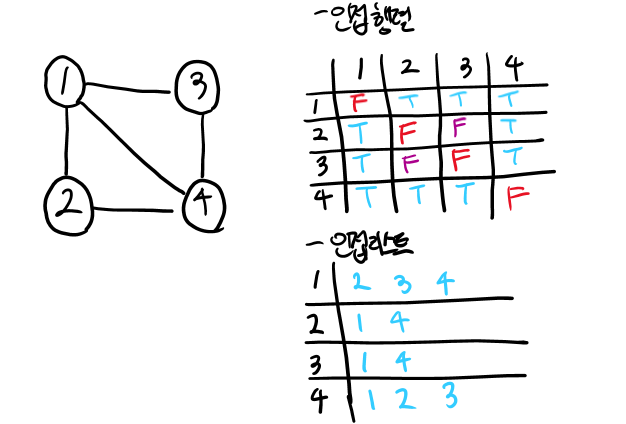 1 3
2 4
- 인접행렬
1 2 3 4
1 F T T T
2 T F F T
3 T F F T
4 T T T F
- 인접리스트
1 2 3 4
2 1 4
3 1 4
4 1 2 3